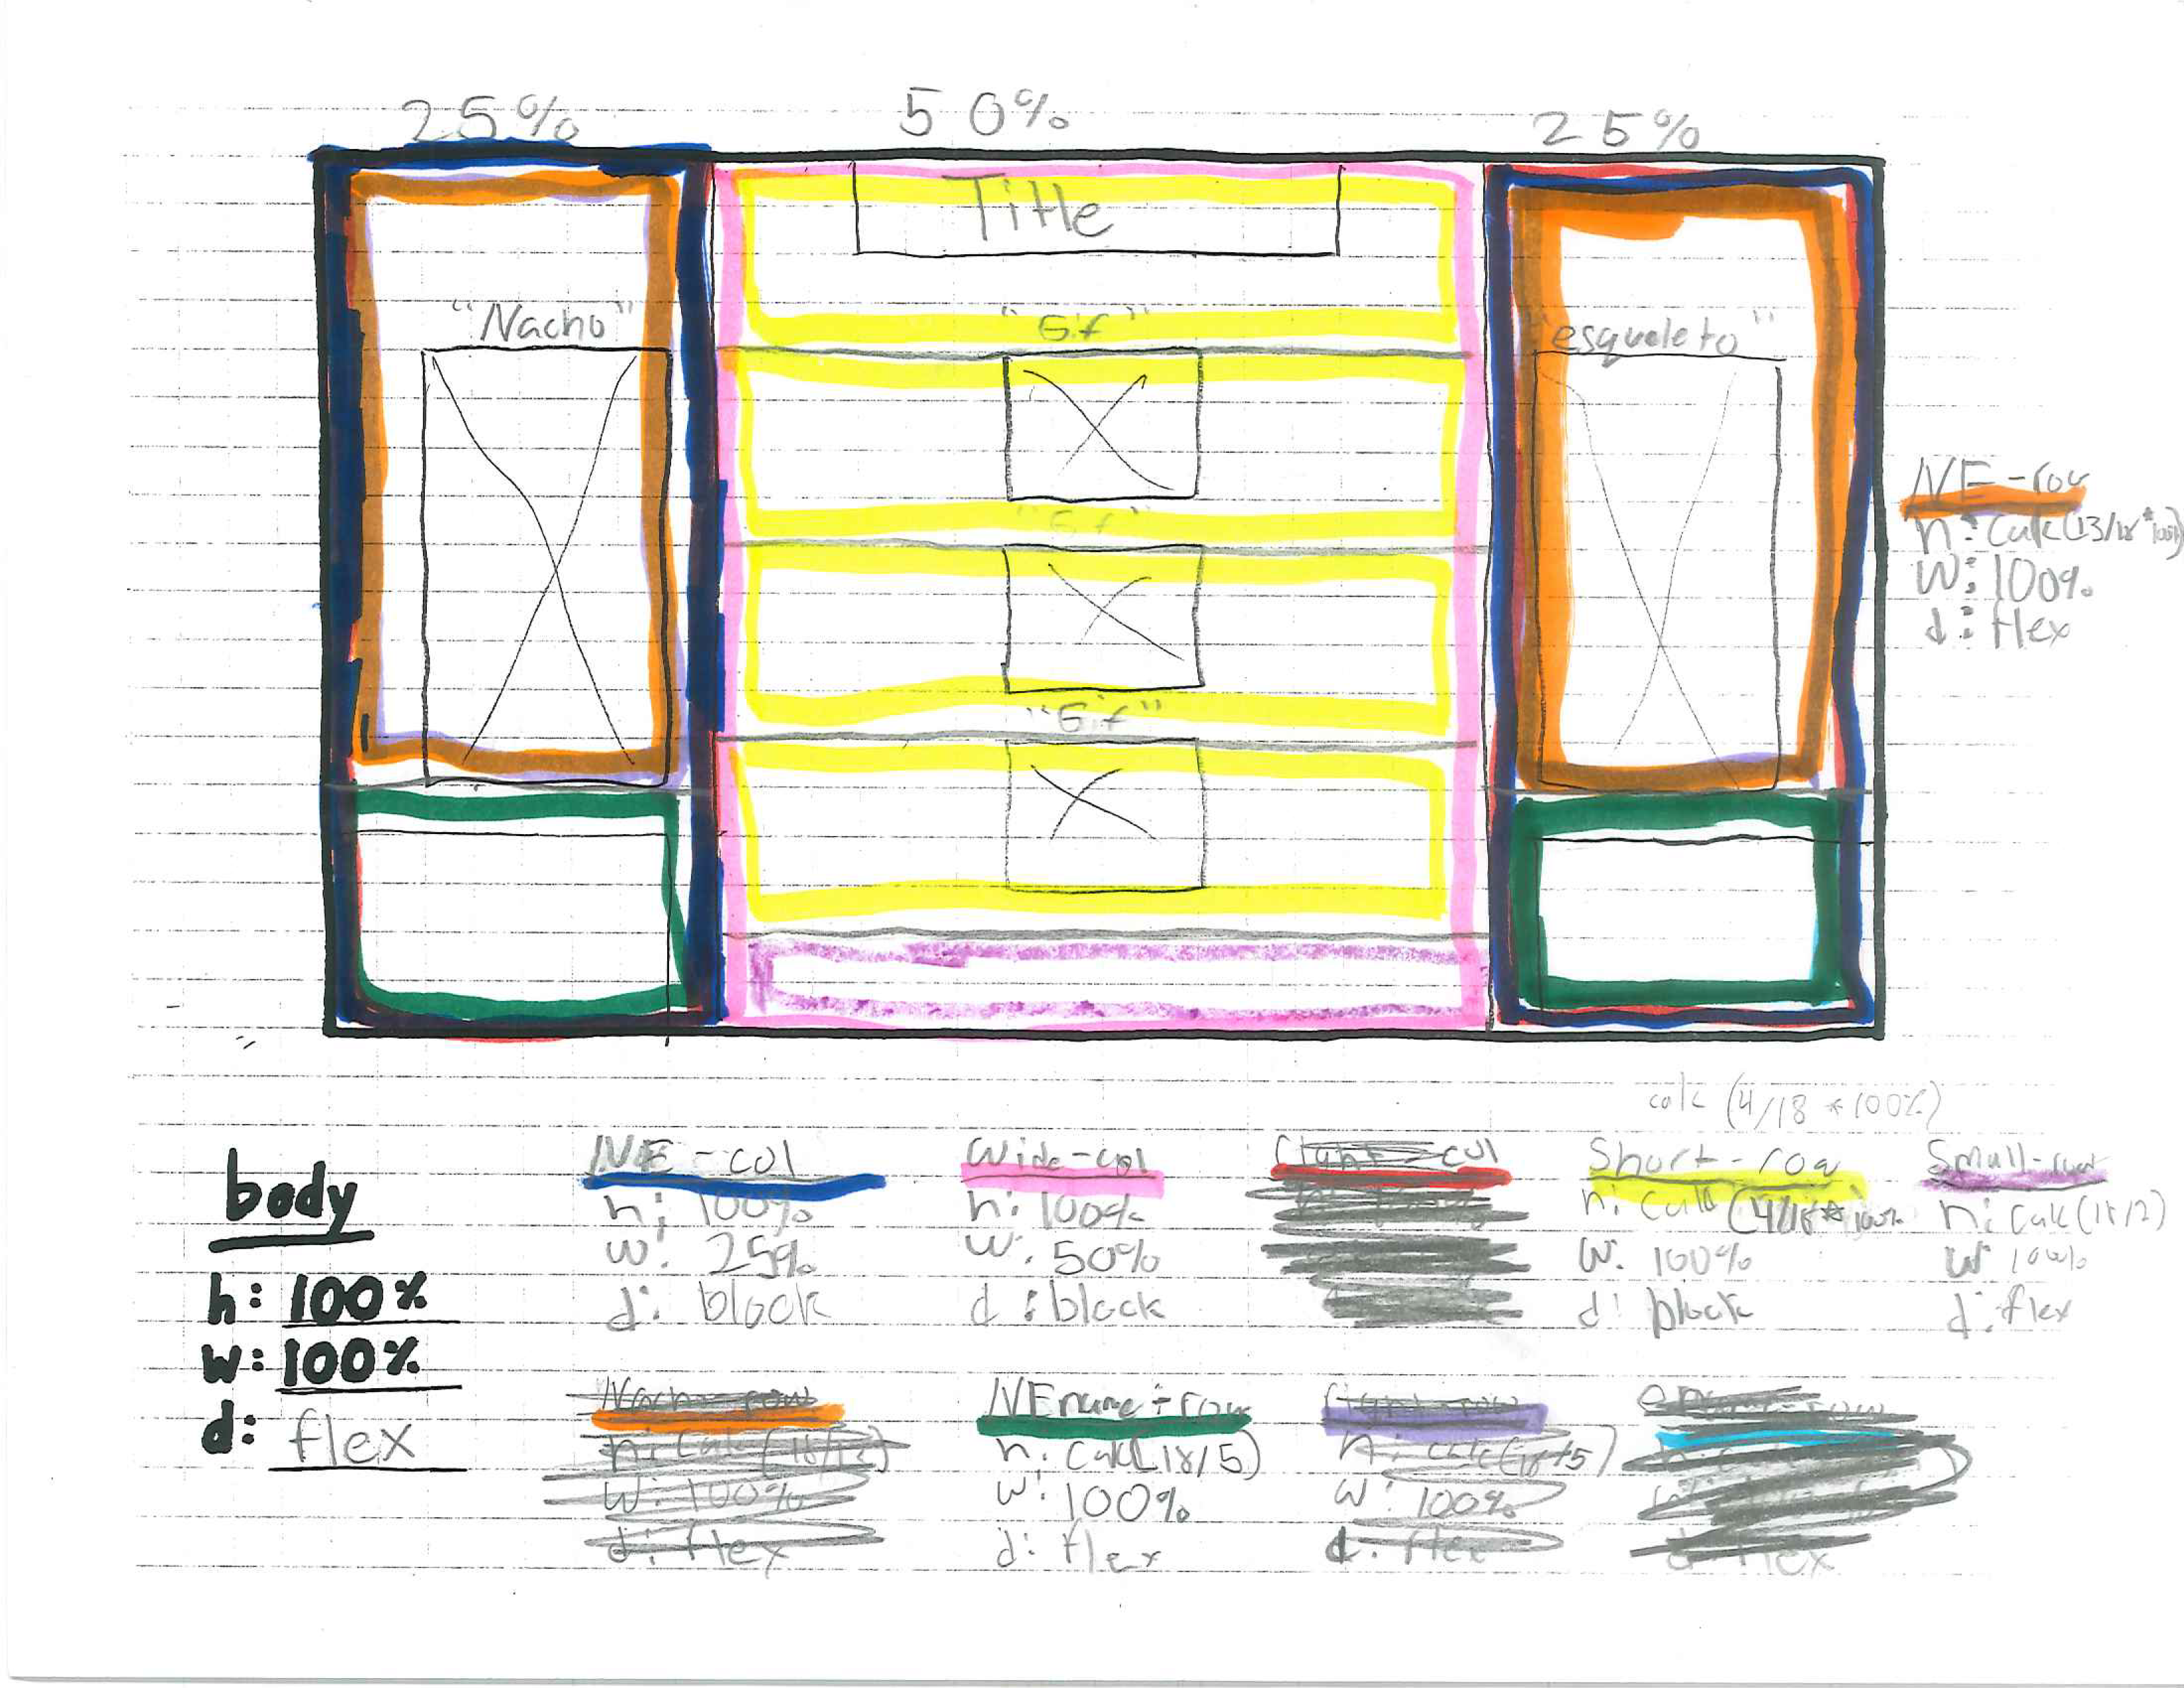 25%
50%
25%
Title
"Nacho"
"Gif"
"esqueleto"
"Gif"
"Gif"
NE-row
h: calc(13/18*100%)
w: 100%
d: flex
calc (4/18 *100%)
body
h: 100%
w: 100%
d: flex
NE-col
h: 100%
w: 25%
d: block
Wide-col
h: 100%
w: 50%
d: block
col
Short-row
h: calc (4/18* 100%
w: 100%
d: block
Small-row
h: calc(18/2)
w 100%
d: flex
Nacho-row
h: calc(18/12)
w: 100%
d: flex
NEname-row
h: calc(18/5)
w: 100%
d: flex
h: calc(18/5)
w: 100%
d: flex
d: flex